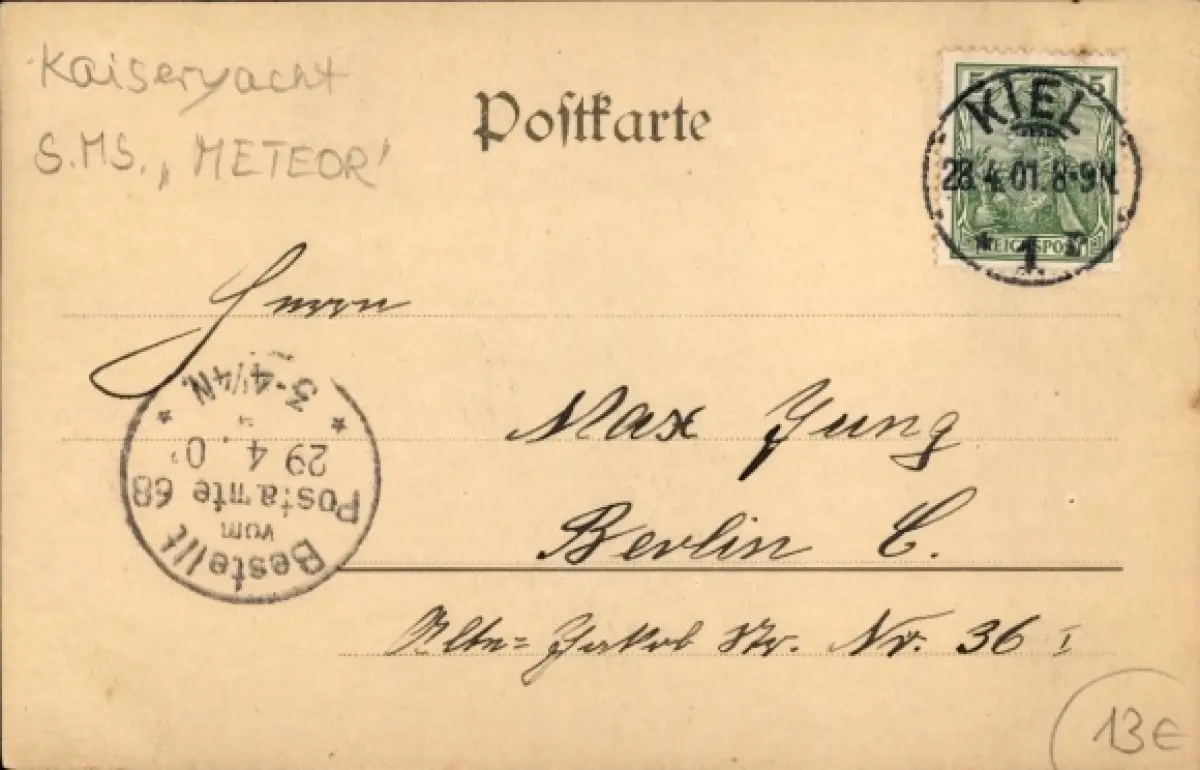 Kaiseryacht
S.M.S. „METEOR'
Postkarte
5 5
KIEL
28.4.01.8-9N.
* 1 I
REICHSPOST
Herrn
Max Jung
Berlin C.
Alte=Jakob Str. Nr. 36 I
Bestellt
vom
Postamte 68
29 4. 0
3-4¼N.
13€